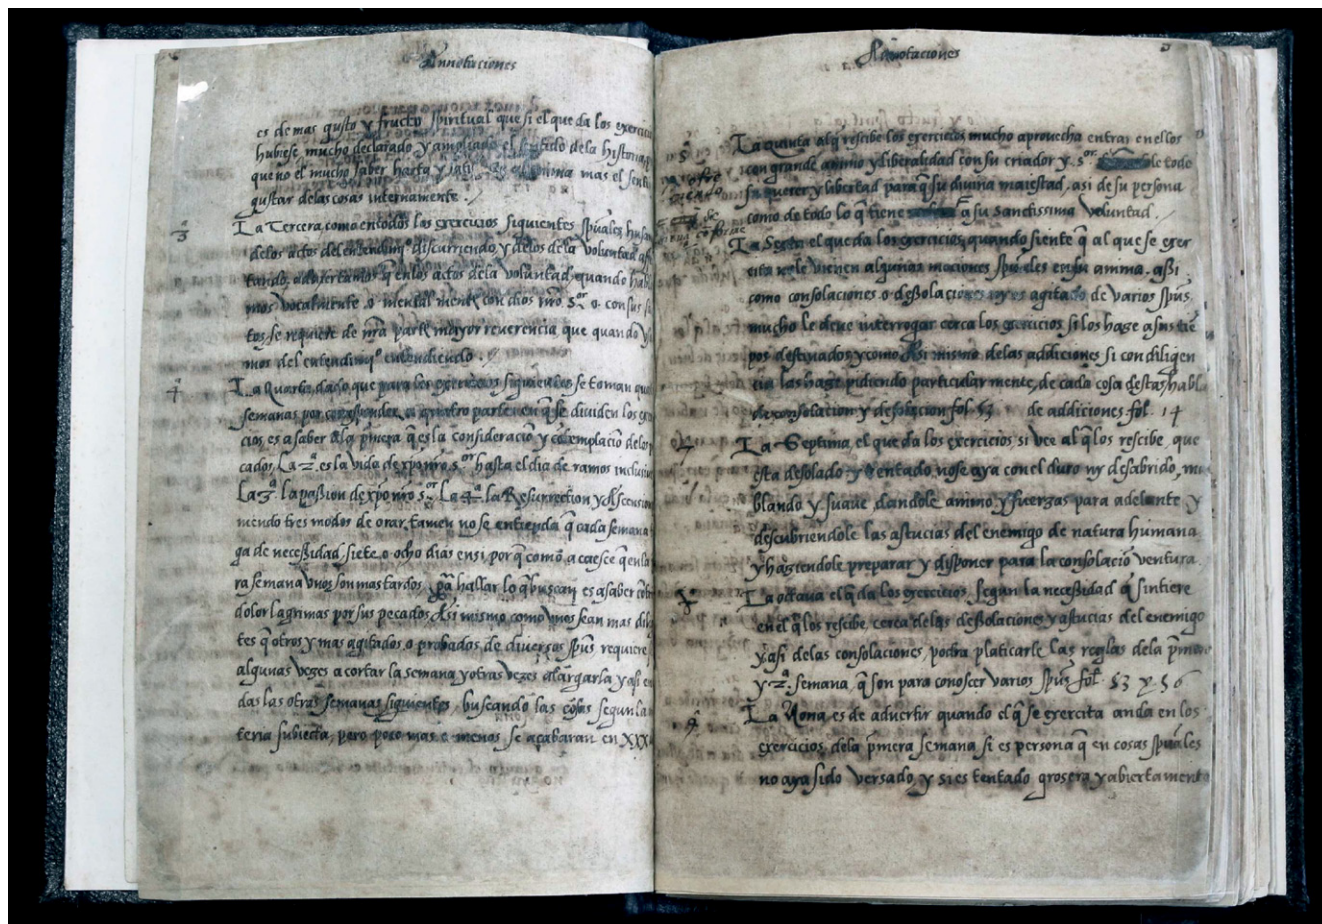 Annotaciones
es de mas gusto y fructo spiritual que si el que da los exerci
hubiese mucho declarado y ampliado el sentido dela historia
que no el mucho saber harta y satisfaze al anima mas el senti
gustar delas cosas internamente.
3ª
La Tercera como en todos los exercicios siguientes spũales husa
delos actos del entendimiº discurriendo y delos dela voluntad aff
tando, advertamos q̃ en los actos dela voluntad quando habla
mos vocalmente o mentalmente con dios nr̃o s.or o con sus s
tos se requiere de nr̃a parte mayor reverencia que quando
mos del entendimiº entendiendo.
4ª
La Quarta, dado que para los exercicios siguientes se toman qua
semanas por corresponder a quatro partes en q̃ se dividen los ex
cios, es a saber ala p̃mera q̃ es la consideraciõ y cõtemplaciõ delos
cados, La 2ª. es la vida de xp̃o nr̃o s.or hasta el dia de ramos inclusi
La 3ª. la passion de xp̃o nr̃o s.or La 4ª. la Resurrection y Ascension
niendo tres modos de orar, tamen no se entienda q̃ cada semana
ga de necessidad siete o ocho dias en si, por q̃ como acaesce q̃ en la
ra semana unos son mas tardos p̃a hallar lo q̃ buscan es a saber cõt
dolor lagrimas por sus pecados Asi mismo como unos sean mas dili
tes q̃ otros y mas agitados o probados de diversos spũs, requiere
algunas vezes acortar la semana y otras vezes alargarla y asi en
das las otras semanas siguientes, buscando las cosas segun la
teria subiecta, pero poco mas o menos se acabaran en XXX
Annotaciones
5ª
La Quinta al q̃ rescibe los exercicios mucho aprovecha entrar en ellos
con grande animo y liberalidad con su criador y s.or
todo
su querer y libertad para q̃ su divina majestad, asi de su persona
como de todo lo q̃ tiene
a su sanctissima voluntad.
La Sexta el que da los exercicios, quando siente q̃ al que se exer
cita no le vienen algunas mociones spũales en su anima, assi
como consolaciones o dessolaciones ny es agitado de varios spũs,
mucho le deve interrogar cerca los exercicios, si los haze a sus tiẽ
pos destinados y como Asi mismo delas addiciones si con diligen
cia las haze, pidiendo particularmente, de cada cosa destas, habla
de consolacion y desolacion fol. 53 de addiciones fol. 14
7ª
La Septima, el que da los exercicios si vee al q̃ los rescibe, que
esta desolado y tentado no se aya con el duro ny desabrido, ma
blando y suave, dandole animo y fuerzas para adelante y
descubriendole las astucias del enemigo de natura humana
y haziendole preparar y disponer para la consolaciõ ventura.
La octava el q̃ da los exercicios, segun la necessidad q̃ sintiere
en el q̃ los rescibe, cerca delas dessolaciones y astucias del enemigo
y asi delas consolaciones, podra platicarle las reglas dela p̃mera
y 2ª. semana, q̃ son para conoscer varios spũs fol. 53 y 56
9ª
La Nona, es de advertir quando el q̃ se exercita anda en los
exercicios dela p̃mera semana, si es persona q̃ en cosas spũales
no aya sido versado, y si es tentado grosera y abiertamente